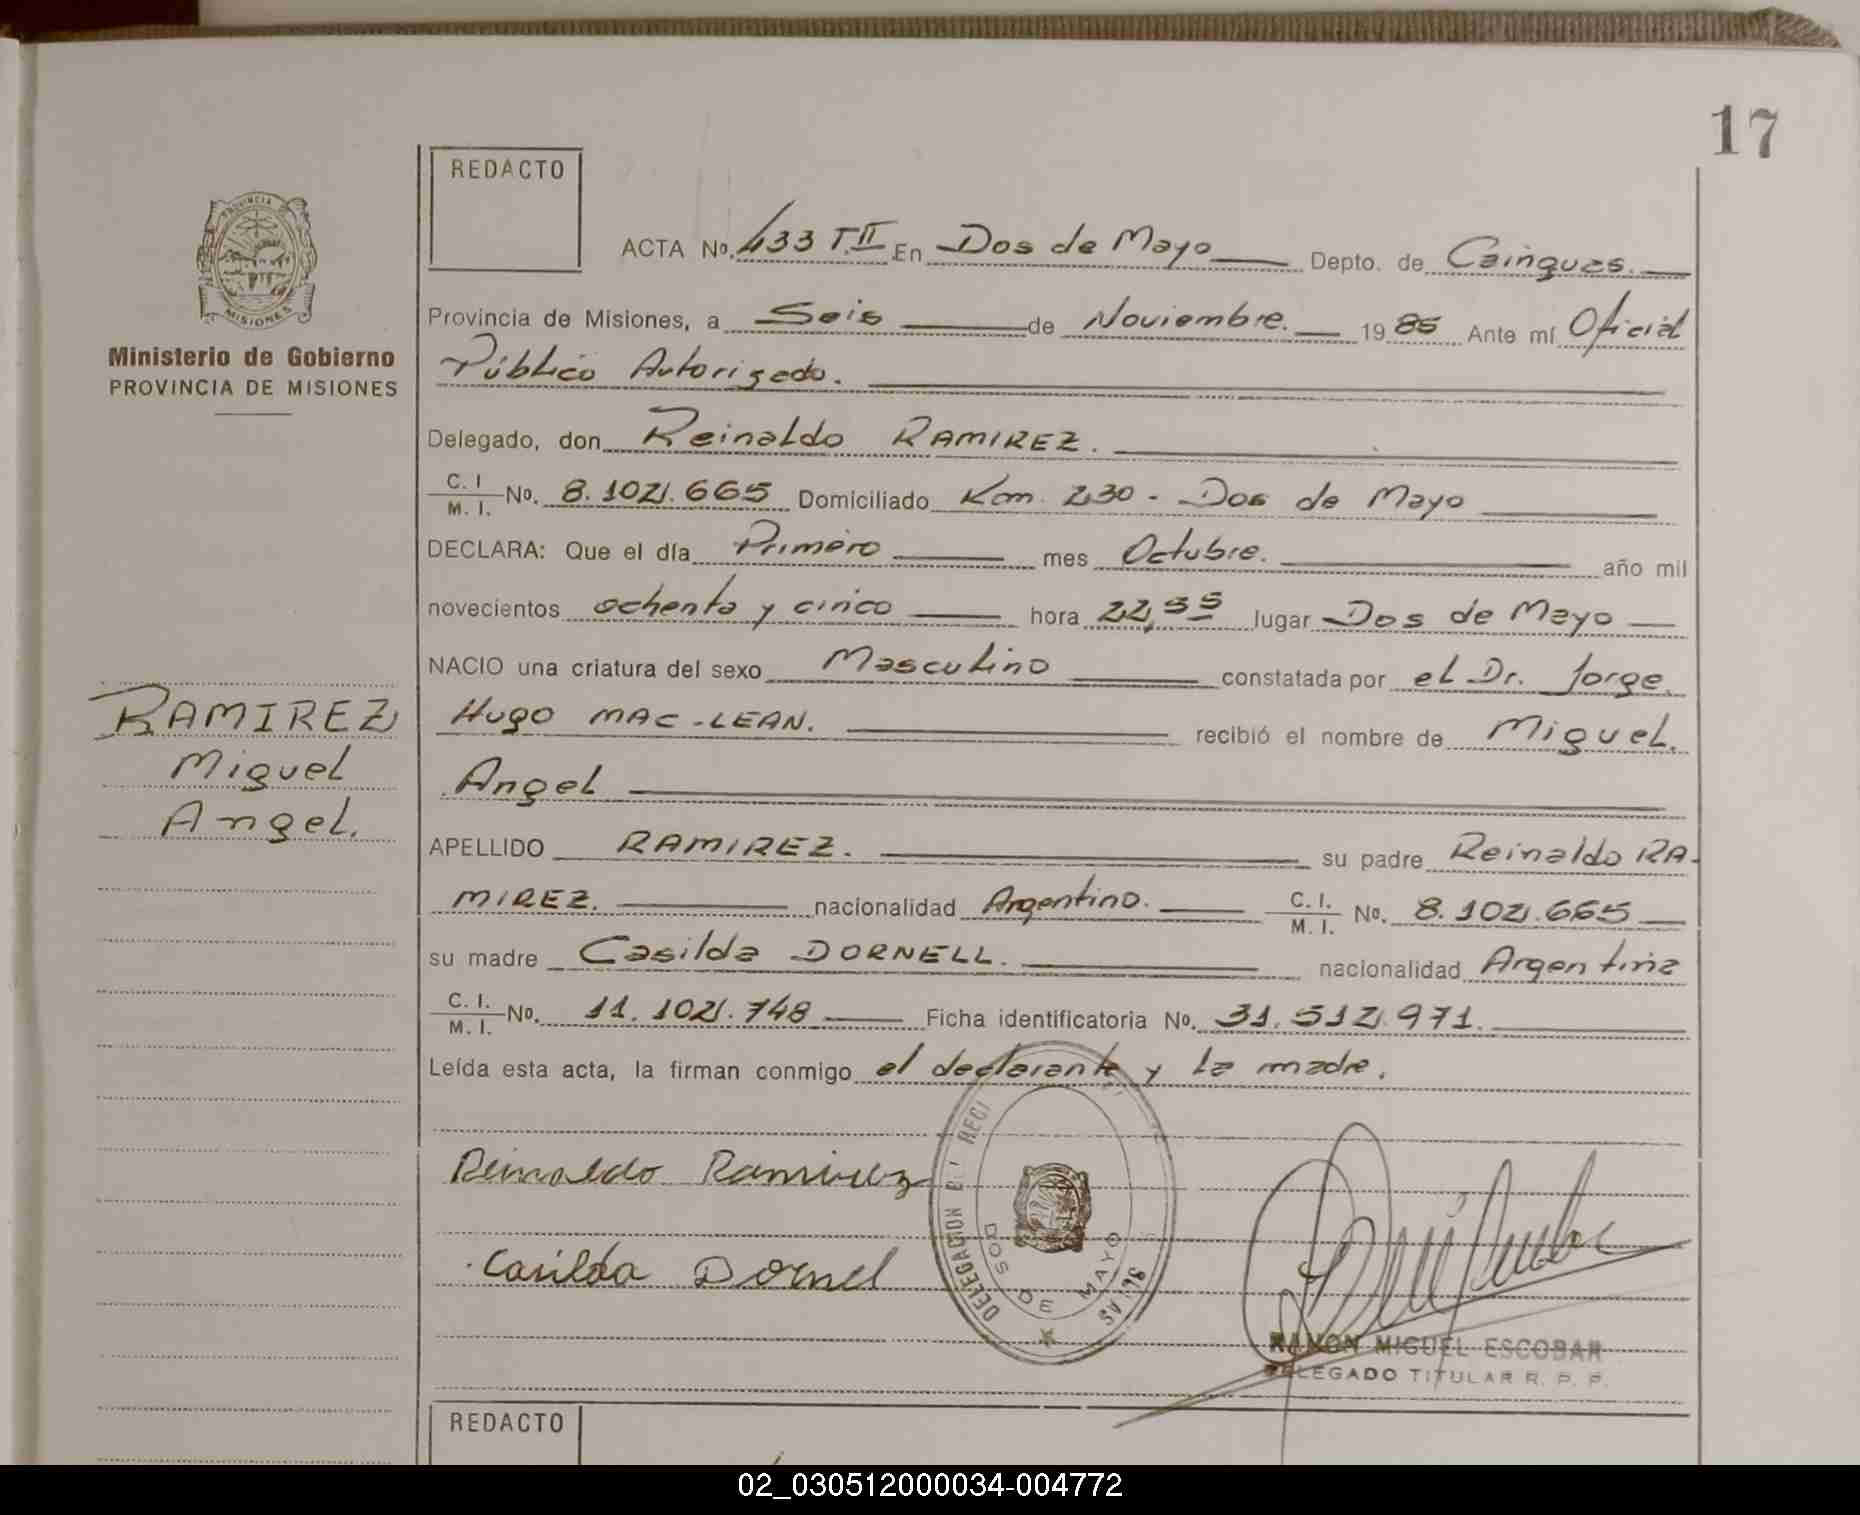 17
REDACTO
ACTA Nº. 433 T.II En Dos de Mayo Depto. de Cainguas.
Provincia de Misiones, a Seis de Noviembre. 1985 Ante mí Oficial
Público Autorizado.
PROVINCIA DE
MISIONES
Ministerio de Gobierno
PROVINCIA DE MISIONES
Delegado, don Reinaldo RAMIREZ.
C. I
M. I. Nº. 8.102.665 Domiciliado Km. 230 - Dos de Mayo
DECLARA: Que el día Primero mes Octubre. año mil
novecientos ochenta y cinco hora 22,35 lugar Dos de Mayo
NACIO una criatura del sexo Masculino constatada por el Dr. Jorge
Hugo MAC-LEAN. recibió el nombre de Miguel
Angel
RAMIREZ
Miguel
Angel.
APELLIDO RAMIREZ. su padre Reinaldo RA-
MIREZ. nacionalidad Argentino. C. I.
M. I. Nº. 8.102.665
su madre Casilda DORNELL. nacionalidad Argentina
C. I.
M. I. Nº. 11.102.748 Ficha identificatoria Nº. 31.512.971.
Leída esta acta, la firman conmigo el declarante y la madre.
Reinaldo Ramirez
Casilda Dornel
DELEGACION
DOS DE MAYO
RAMON MIGUEL ESCOBAR
DELEGADO TITULAR R. P. P.
REDACTO
02_030512000034-004772